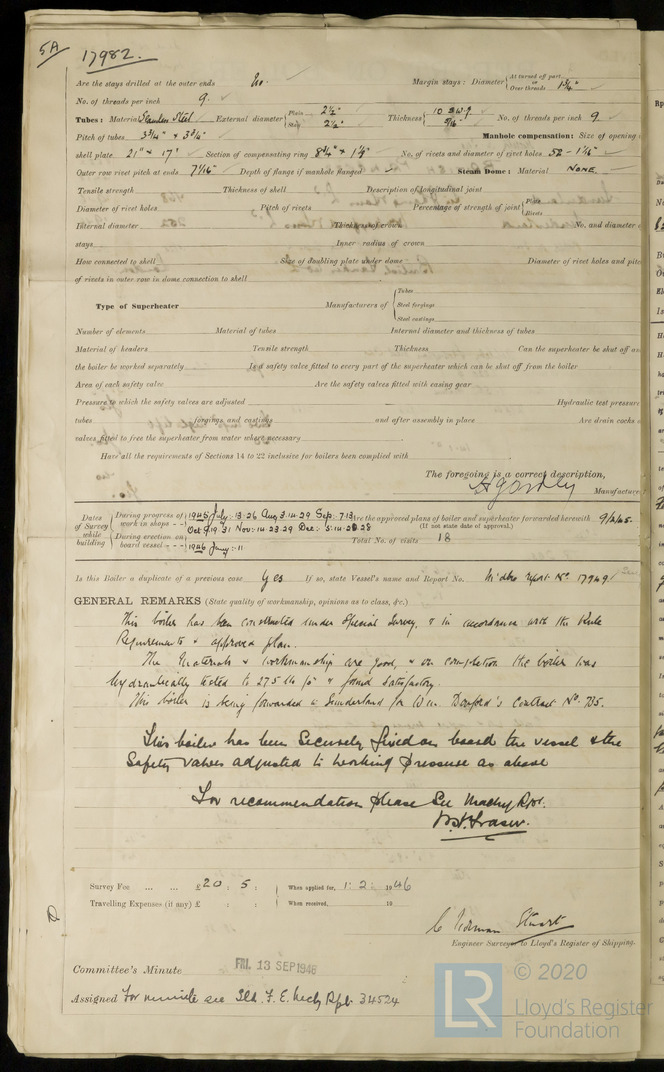 5A
17982.
Are the stays drilled at the outer ends No. Margin stays: Diameter {At turned off part, or Over threads 1 3/4"
No. of threads per inch 9.
Tubes: Material Seamless Steel External diameter {Plain 2 1/2" Stay 2 1/2" Thickness {10 S.W.G 5/16" No. of threads per inch 9
Pitch of tubes 3 3/4" x 3 3/4" Manhole compensation: Size of opening
shell plate 21" x 17" Section of compensating ring 8 3/4" x 1 1/4" No. of rivets and diameter of rivet holes 52 - 1 1/16"
Outer row rivet pitch at ends 7 7/16" Depth of flange if manhole flanged Steam Dome: Material NONE
Tensile strength Thickness of shell Description of longitudinal joint
Diameter of rivet holes Pitch of rivets Percentage of strength of joint {Plate Rivets
Internal diameter Thickness of crown No. and diameter
stays Inner radius of crown
How connected to shell Size of doubling plate under dome Diameter of rivet holes and pitch
of rivets in outer row in dome connection to shell
Type of Superheater Manufacturers of {Tubes Steel forgings Steel castings
Number of elements Material of tubes Internal diameter and thickness of tubes
Material of headers Tensile strength Thickness Can the superheater be shut off an
the boiler be worked separately Is a safety valve fitted to every part of the superheater which can be shut off from the boiler
Area of each safety valve Are the safety valves fitted with easing gear
Pressure to which the safety valves are adjusted Hydraulic test pressure
tubes forgings and castings and after assembly in place Are drain cocks
valves fitted to free the superheater from water where necessary
Have all the requirements of Sections 14 to 22 inclusive for boilers been complied with
The foregoing is a correct description,
Manufacturer
Dates of Survey while building
During progress of work in shops - - 1945 July: 13. 26 Aug 3. 14. 29 Sep. 7. 13. Oct 9. 19. 31 Nov: 14. 23. 29 Dec: 5. 14. 28
During erection on board vessel - - 1946 Jany: 11
Are the approved plans of boiler and superheater forwarded herewith 9/2/45.
(If not state date of approval.)
Total No. of visits 18
Is this Boiler a duplicate of a previous case Yes If so, state Vessel's name and Report No. M'dbro report No. 17949
GENERAL REMARKS (State quality of workmanship, opinions as to class, &c.)
This boiler has been constructed under Special Survey, & in accordance with the Rule
Requirements & approved plan.
The Materials & workmanship are good, & on completion the boiler was
hydraulically tested to 275 lb/□" & found satisfactory.
This boiler is being forwarded to Sunderland for Wm. Doxford's Contract No. 735.
This boiler has been securely fixed on board the vessel & the
Safety valves adjusted to working pressure as above
For recommendation please See Machy Rpt.
Survey Fee ... ... £20 : 5 : When applied for, 1. 2. 1946
Travelling Expenses (if any) £ : : When received, 19
C Norman Stuart
Engineer Surveyor to Lloyd's Register of Shipping.
Committee's Minute FRI. 13 SEP 1946
Assigned For minute see Sld. F. E. Mchy Rpt. 34524
© 2020
Lloyd's Register
Foundation
LR